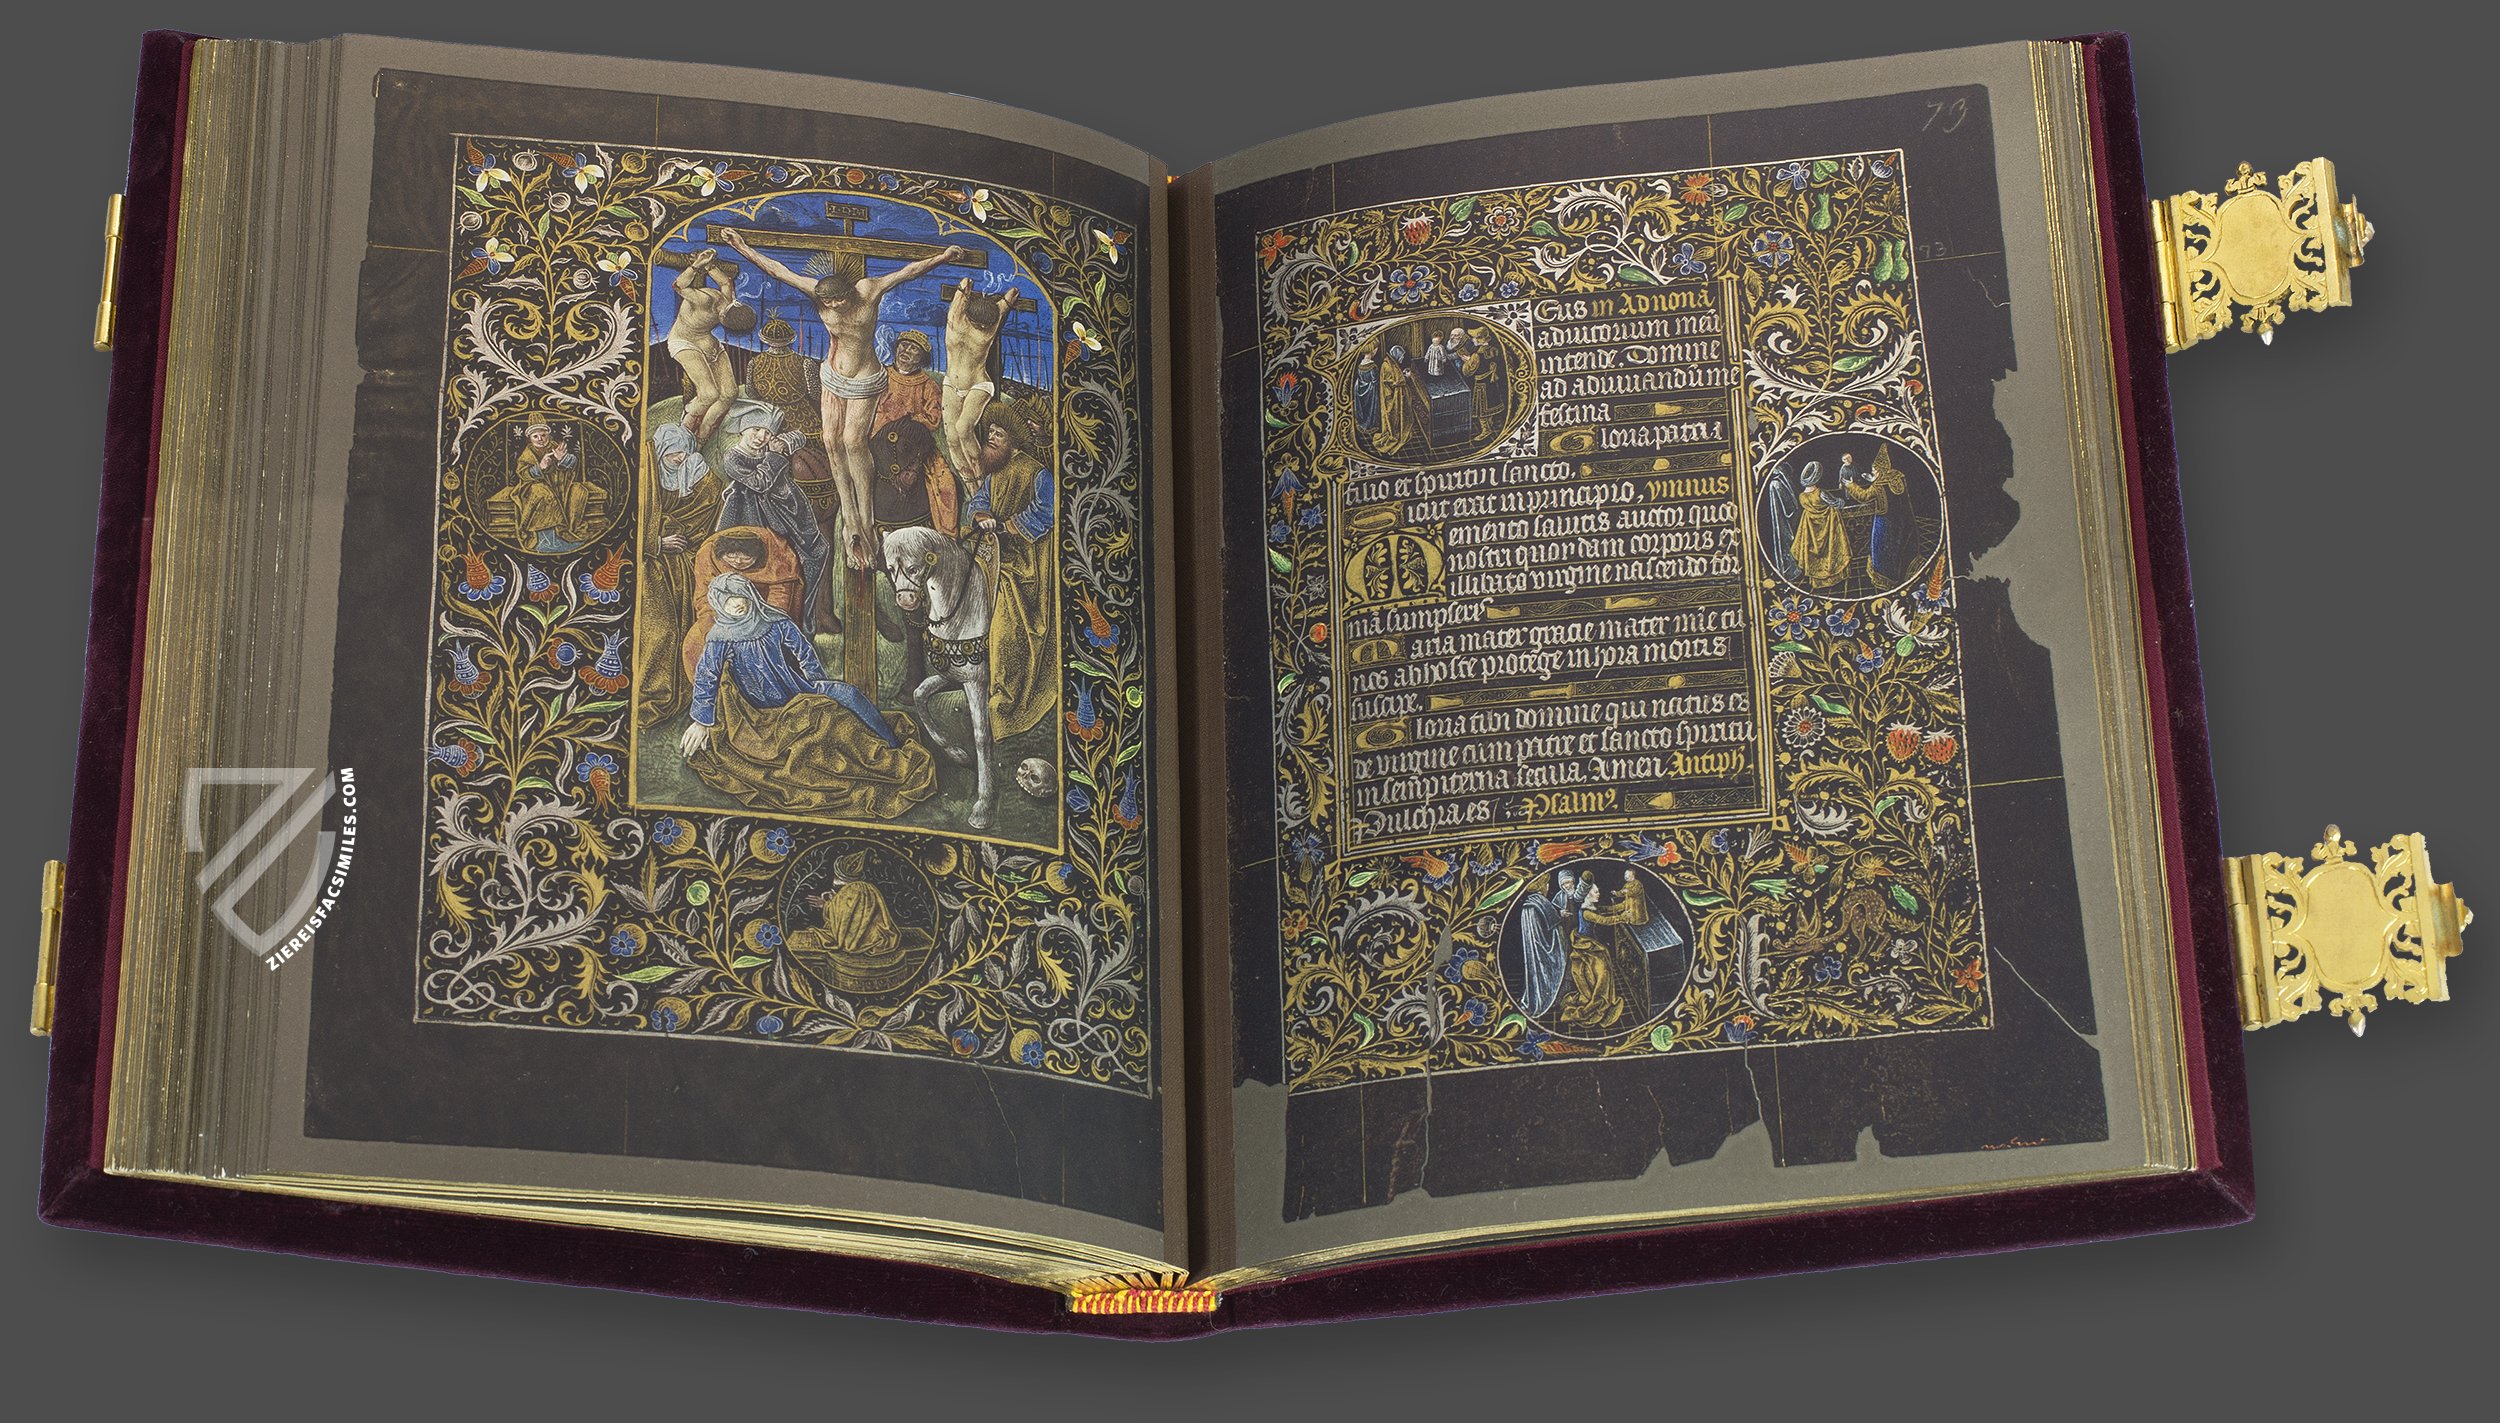 INRI
73
73
Deus in Ad nona
adiutorium meū
intende. Domine
ad adiuuandū me
festina
Gloria patri. i
filio et spiritui sancto.
Sicut erat in principio, ymnus
Memento salutis auctor quod
nostri quondam corporis ex
illibata virgine nascendo for
mā sumpseris
Maria mater gracie mater mīe tu
nos ab hoste protege in hora mortis
suscipe.
Gloria tibi domine qui natus es
de virgine cum patre et sancto spiritu
in sempiterna secula, Amen Antiph
Pulchra es Psalmꝰ
ZIEREISFACSIMILES.COM